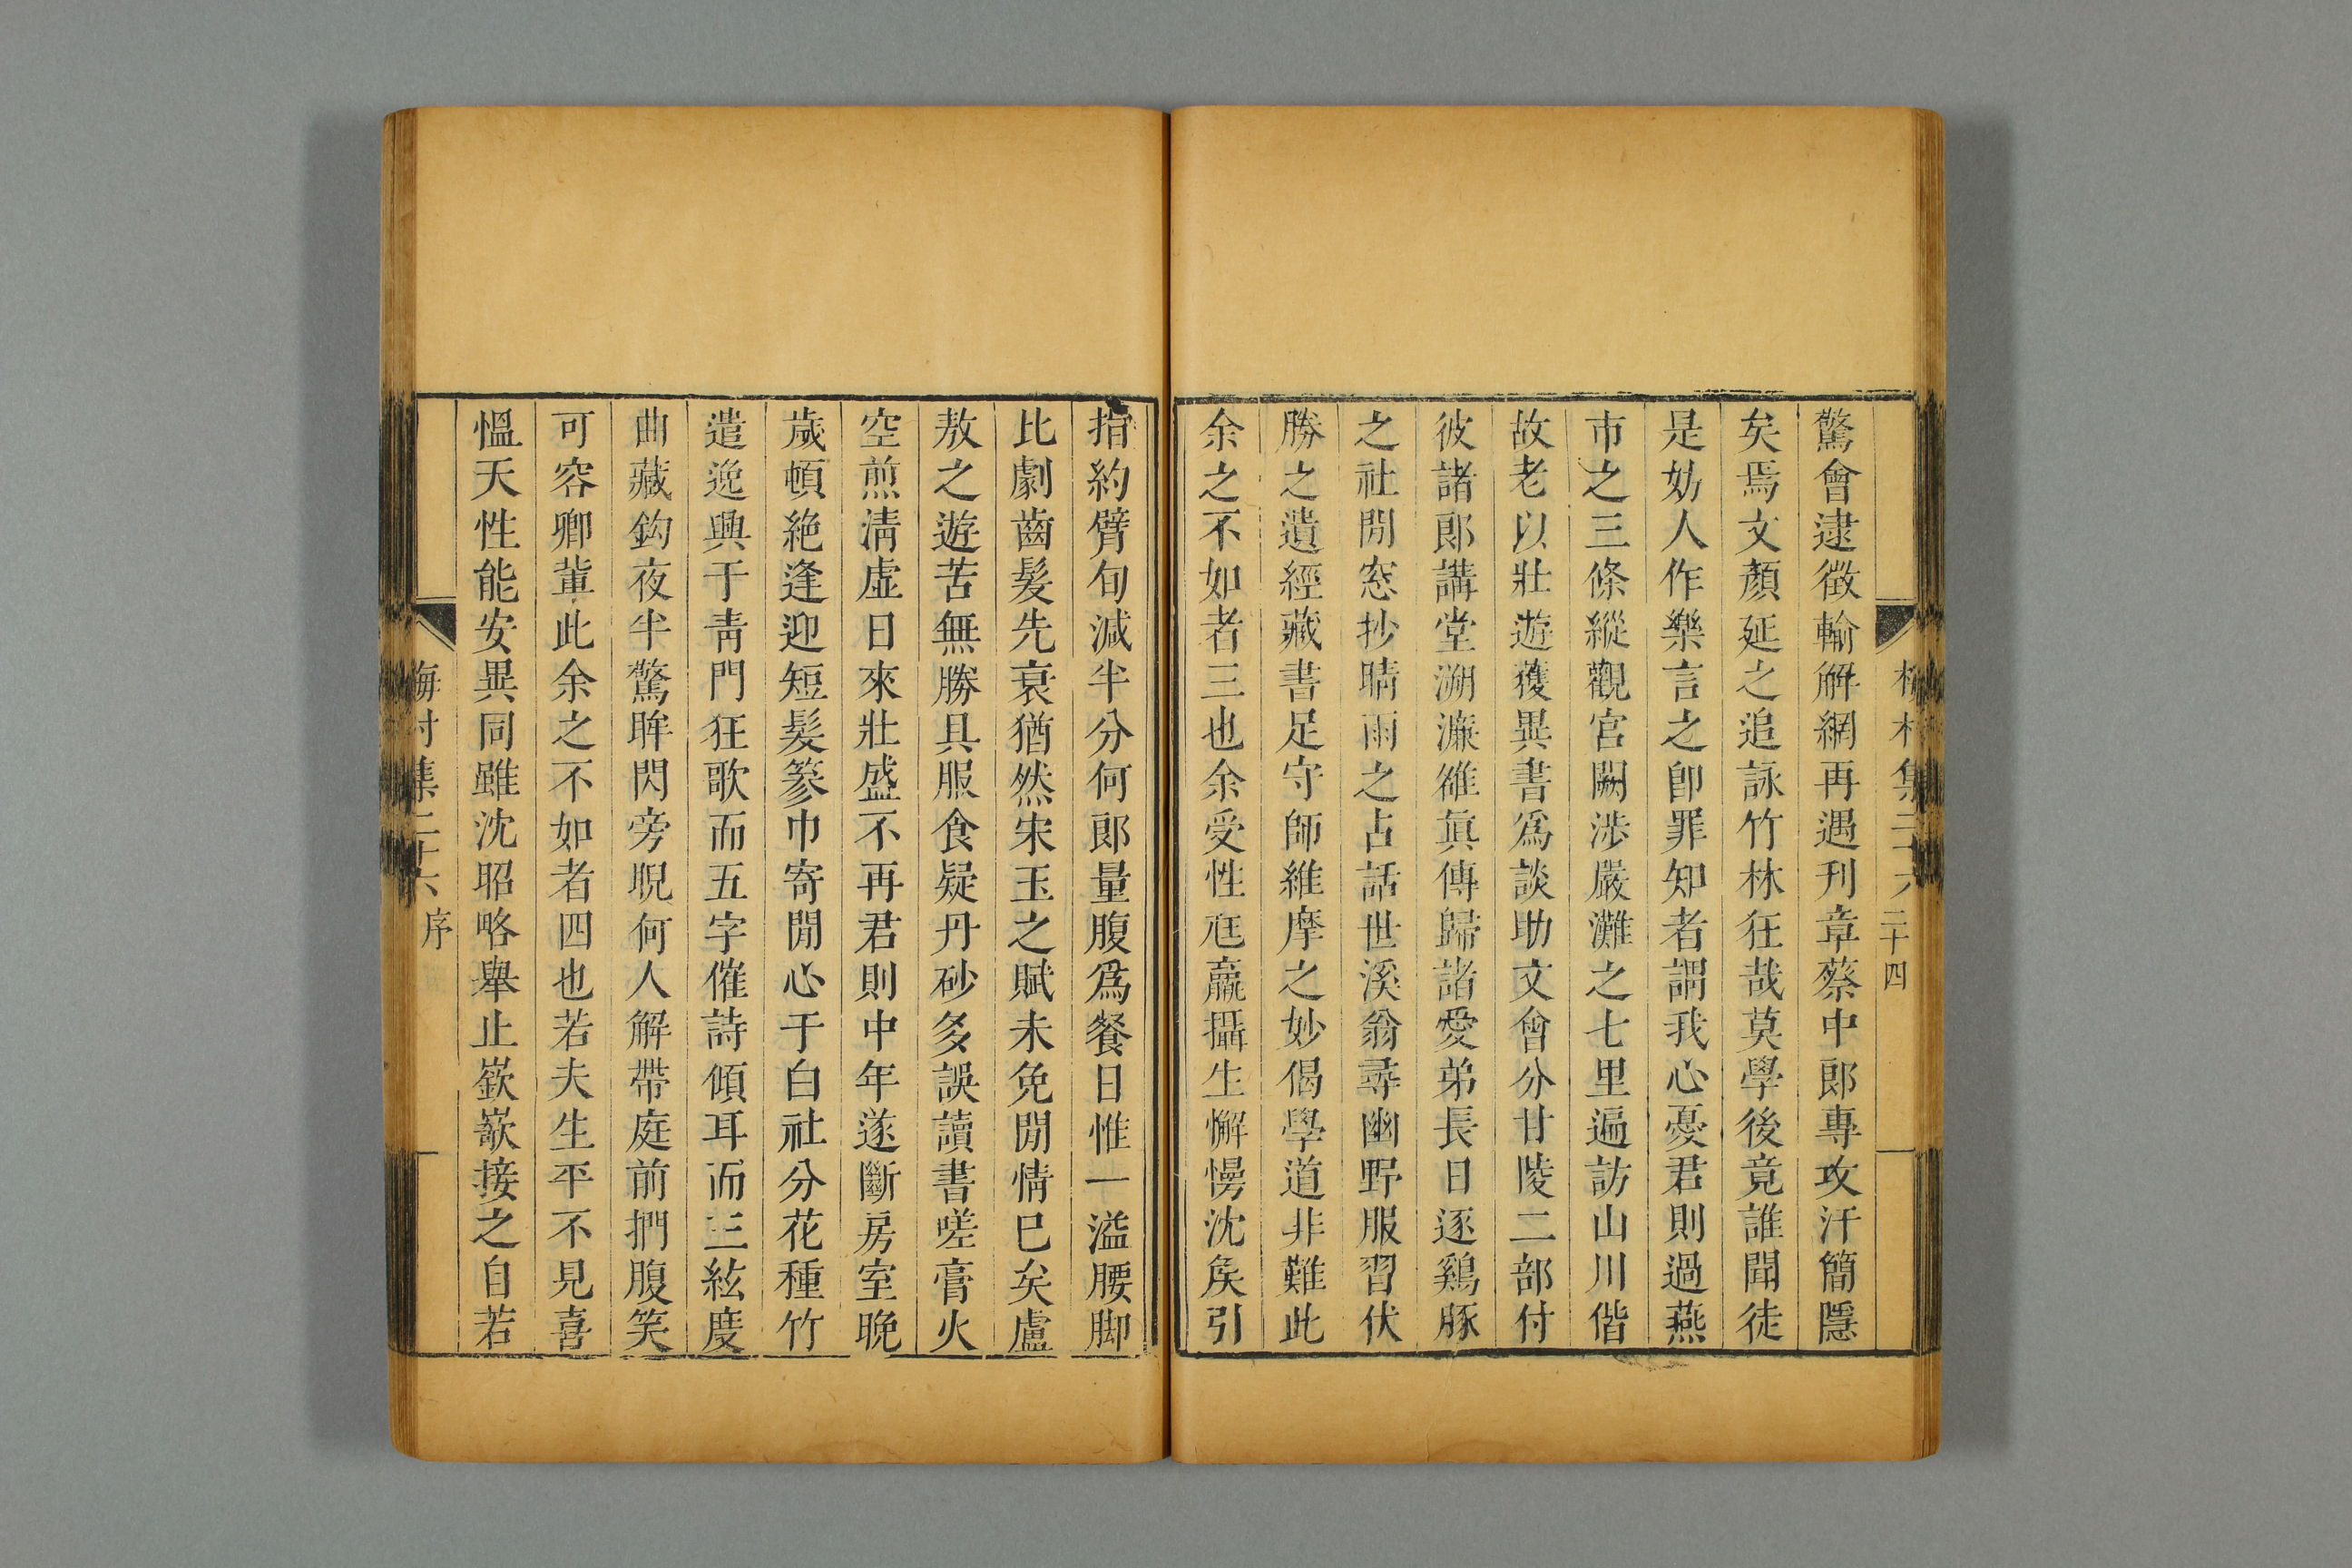 驚會逮徵輸解網再遇刋章蔡中郎專攻汗簡隱
矣焉文顏延之追詠竹林狂哉莫學後竟誰聞徒
是妨人作樂言之卽罪知者謂我心憂君則過燕
市之三條縱觀宮闕涉嚴灘之七里遍訪山川偕
故老以壯遊獲異書爲談助文會分甘陵二部付
彼諸郎講堂溯濂雒眞傳歸諸愛弟長日逐鷄豚
之社閒窓抄晴雨之占話世溪翁尋幽野服習伏
勝之遺經藏書足守師維摩之妙偈學道非難此
余之不如者三也余受性尫羸攝生懈慢沈矦引
指約臂旬減半分何郎量腹爲餐日惟一溢腰脚
比劇齒髮先衰猶然宋玉之賦未免閒情巳矣盧
敖之遊苦無勝具服食疑丹砂多誤讀書嗟膏火
空煎淸虛日來壯盛不再君則中年遂斷房室晚
歲頓絶逢迎短髮篸巾寄閒心于白社分花種竹
遣逸興于靑門狂歌而五字催詩傾耳而三絃度
曲藏鈎夜半驚眸閃旁睨何人解帶庭前捫腹笑
可容卿輩此余之不如者四也若夫生平不見喜
慍天性能安異同雖沈昭略舉止嶔嶔接之自若
梅村集二十六 序
梅村集二十六 二十四